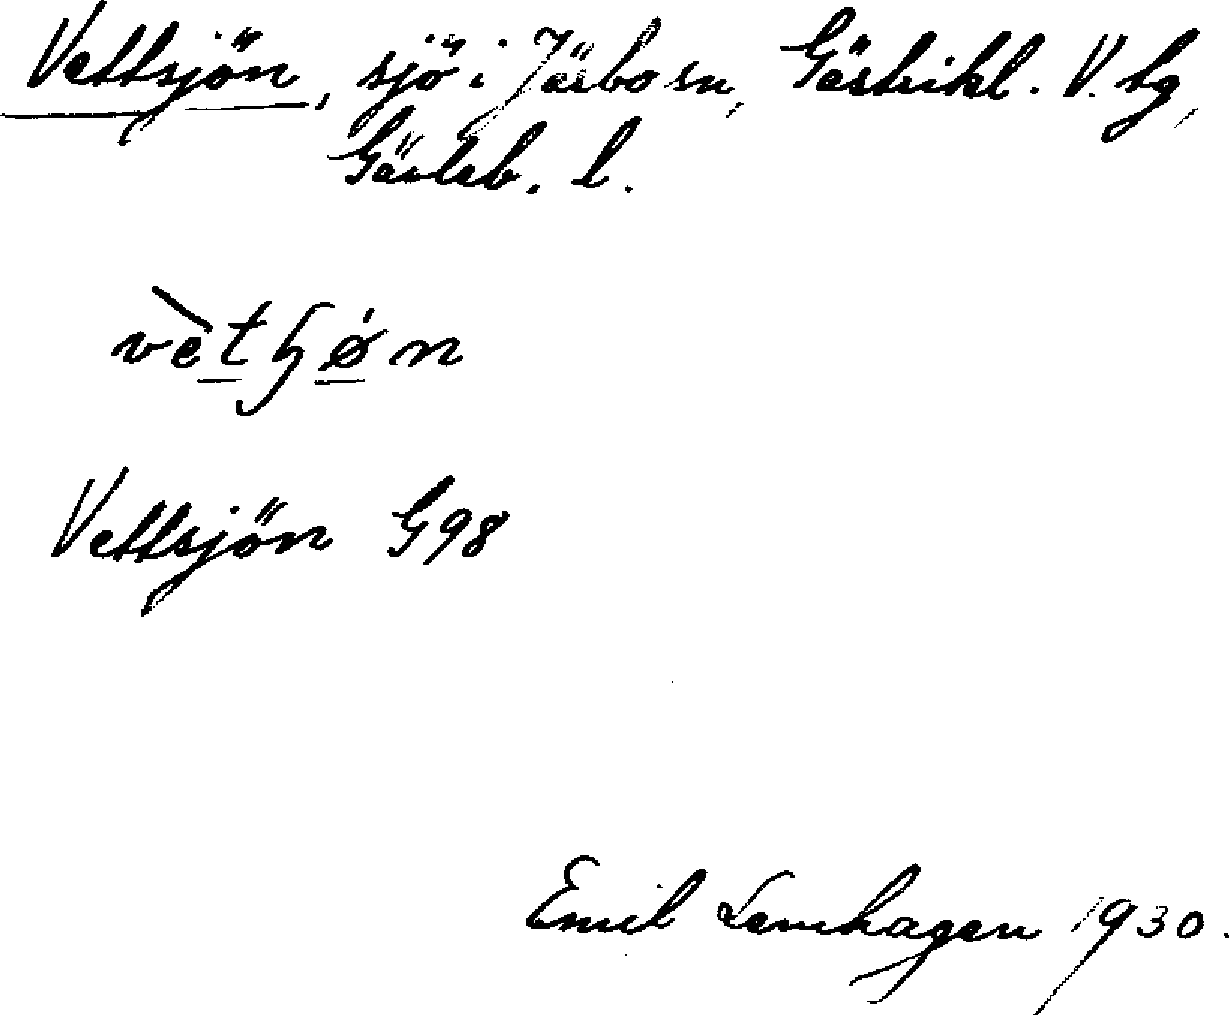 Vettsjön, sjö i Järbo sn, Gästrikl. V. tg,
Gävleb. l.
vètꞕǿn
Vettsjön G98
Emil Lemhagen 1930.